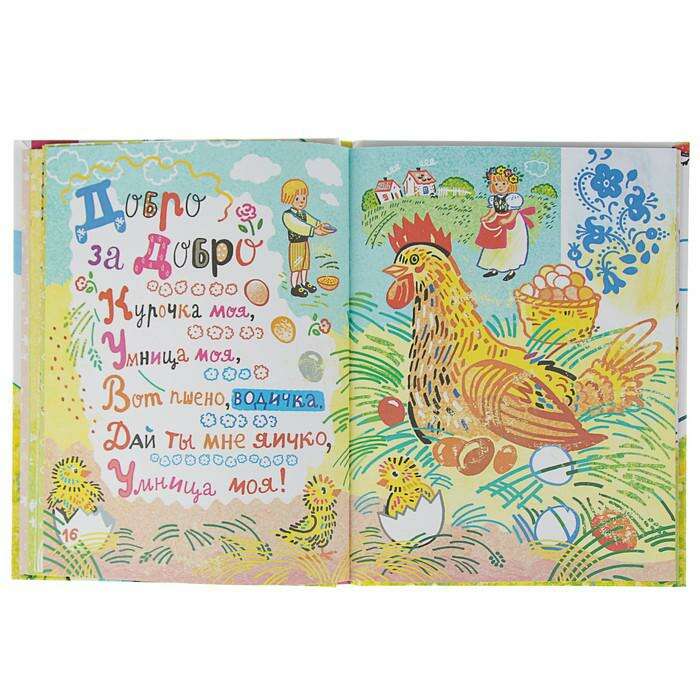 Добро
за Добро
Курочка моя,
Умница моя,
Вот пшено, водичка.
Дай ты мне яичко,
Умница моя!
16